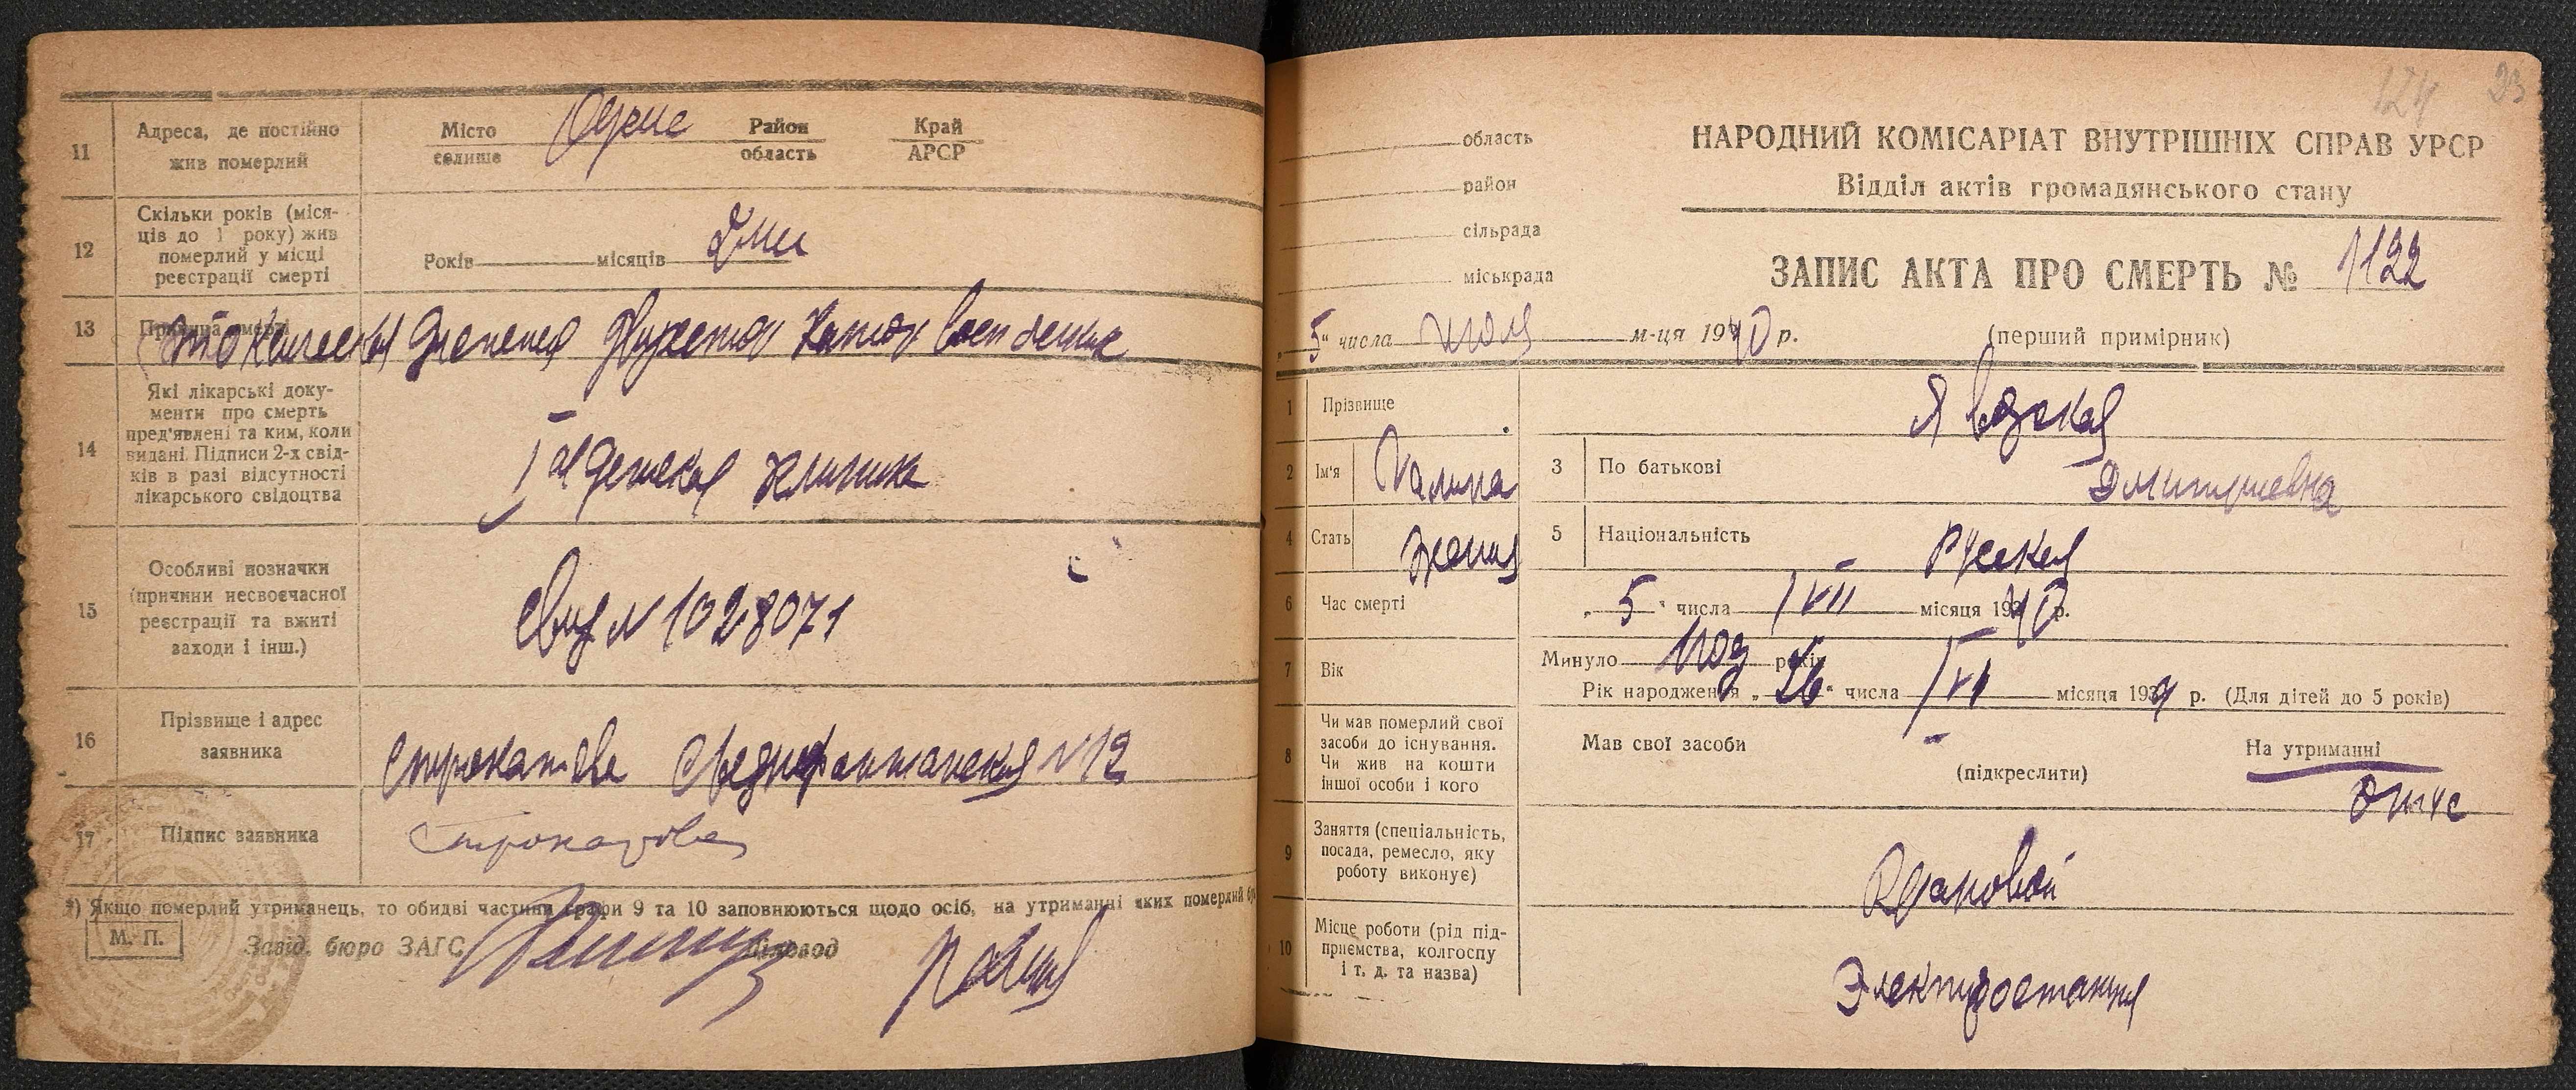 11
Адреса, де постійно
жив померлий
Місто
селище
Район
область
Край
АРСР
12
Скільки років (міся-
ців до 1 року) жив
померлий у місці
реєстрації смерті
Років місяців Дми
13
Причина смерті
Токсическая
14
Які лікарські доку-
менти про смерть
пред'явлені та ким, коли
видані. Підписи 2-х свід-
ків в разі відсутності
лікарського свідоцтва
I ая детская клиника
15
Особливі позначки
(причини несвоєчасної
реєстрації та вжиті
заходи і інш.)
Свид N 1028071
16
Прізвище і адрес
заявника
Строкатова Среднефонтанская N 12
17
Підпис заявника
Строкатова
*) Якщо померлий утриманець, то обидві частини графи 9 та 10 заповнюються щодо осіб, на утриманні яких померлий
М. П.
Завід. бюро ЗАГС Діловод
124 23
область
район
сільрада
міськрада
НАРОДНИЙ КОМІСАРІАТ ВНУТРІШНІХ СПРАВ УРСР
Відділ актів громадянського стану
ЗАПИС АКТА ПРО СМЕРТЬ № 1122
„5" числа июля м-ця 1940 р.
(перший примірник)
1
Прізвище
Явдская
2
Ім'я
Галина
3
По батькові
Дмитриевна
4
Стать
женск
5
Національність
Русская
6
Час смерті
„5" числа VII місяця 1940 р.
7
Вік
Минуло 1 год років
Рік народження „26" числа VI місяця 1939 р. (Для дітей до 5 років)
8
Чи мав померлий свої
засоби до існування.
Чи жив на кошти
іншої особи і кого
Мав свої засоби
(підкреслити)
На утриманні
Отца
9
Заняття (спеціальність,
посада, ремесло, яку
роботу виконує)
10
Місце роботи (рід під-
приємства, колгоспу
і т. д. та назва)
Электростанция